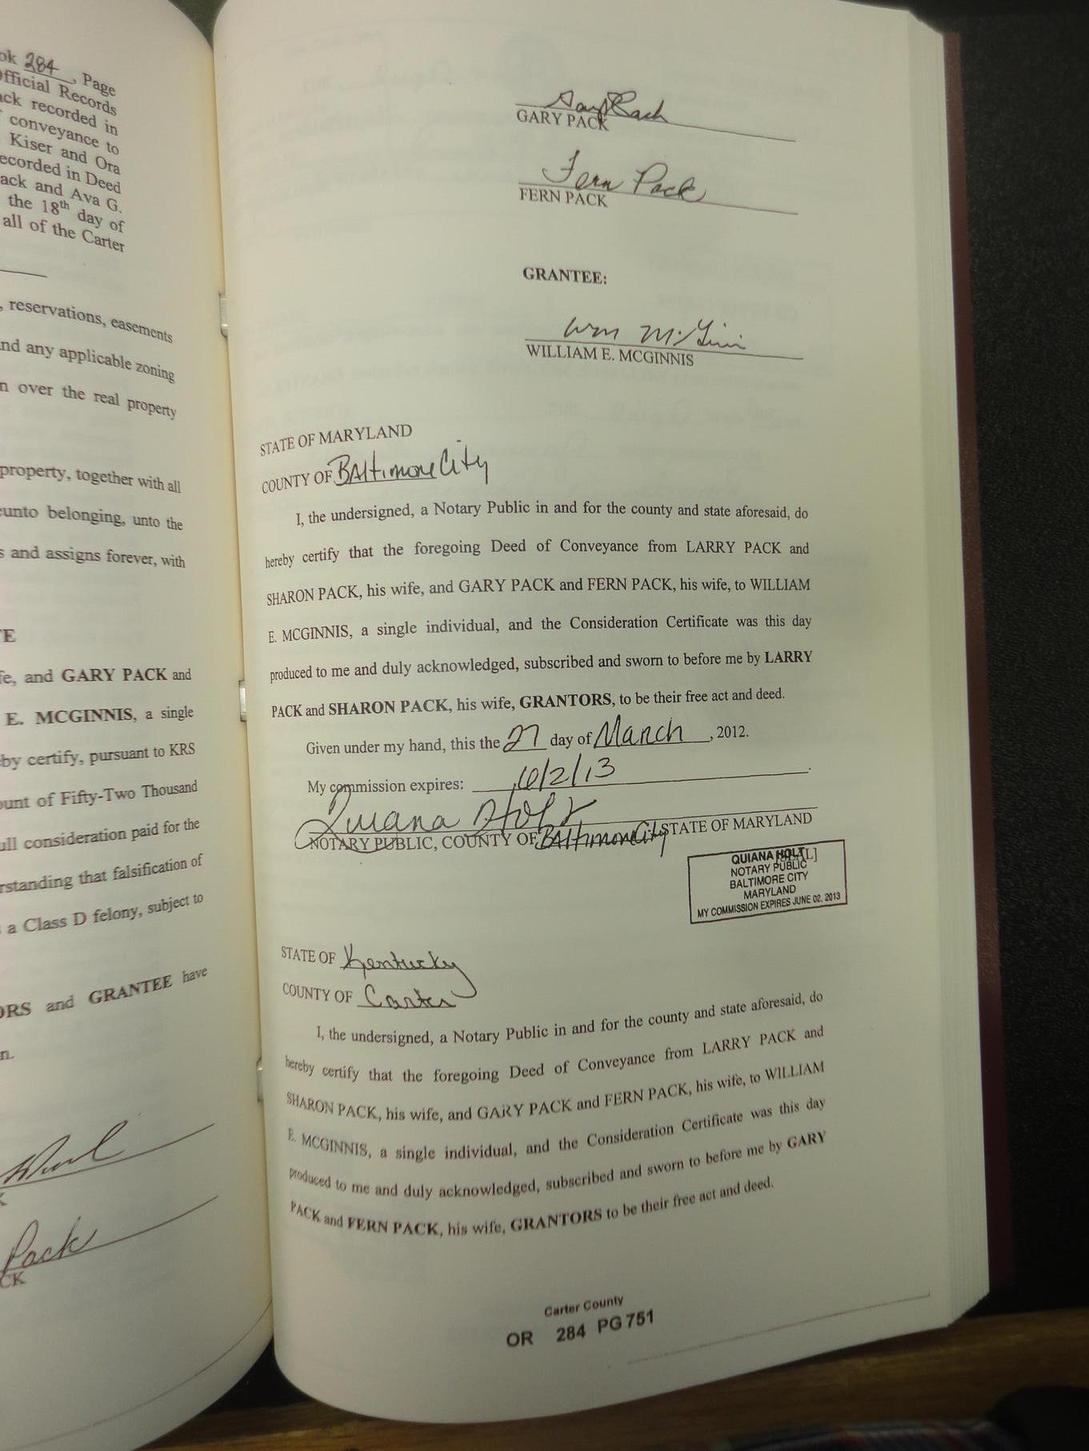 ok 284, Page
Official Records
ack recorded in
conveyance to
Kiser and Ora
ecorded in Deed
ack and Ava G.
the 18th day of
all of the Carter
, reservations, easements
nd any applicable zoning
n over the real property
property, together with all
eunto belonging, unto the
s and assigns forever, with
TE
fe, and GARY PACK and
E. MCGINNIS, a single
by certify, pursuant to KRS
ount of Fifty-Two Thousand
ull consideration paid for the
rstanding that falsification of
a Class D felony, subject to
ORS and GRANTEE have
n.
Pack
CK
Gary Pack
GARY PACK
Fern Pack
FERN PACK
GRANTEE:
Wm McGinnis
WILLIAM E. MCGINNIS
STATE OF MARYLAND
COUNTY OF Baltimore City
I, the undersigned, a Notary Public in and for the county and state aforesaid, do
hereby certify that the foregoing Deed of Conveyance from LARRY PACK and
SHARON PACK, his wife, and GARY PACK and FERN PACK, his wife, to WILLIAM
E. MCGINNIS, a single individual, and the Consideration Certificate was this day
produced to me and duly acknowledged, subscribed and sworn to before me by LARRY
PACK and SHARON PACK, his wife, GRANTORS, to be their free act and deed.
Given under my hand, this the 27 day of March, 2012.
My commission expires: 6/2/13
Quiana Holt
NOTARY PUBLIC, COUNTY OF Baltimore City STATE OF MARYLAND
QUIANA HOLT
NOTARY PUBLIC
BALTIMORE CITY
MARYLAND
MY COMMISSION EXPIRES JUNE 02, 2013
STATE OF Kentucky
COUNTY OF Carter
I, the undersigned, a Notary Public in and for the county and state aforesaid, do
hereby certify that the foregoing Deed of Conveyance from LARRY PACK and
SHARON PACK, his wife, and GARY PACK and FERN PACK, his wife, to WILLIAM
E. MCGINNIS, a single individual, and the Consideration Certificate was this day
produced to me and duly acknowledged, subscribed and sworn to before me by GARY
PACK and FERN PACK, his wife, GRANTORS to be their free act and deed.
Carter County
OR 284 PG 751